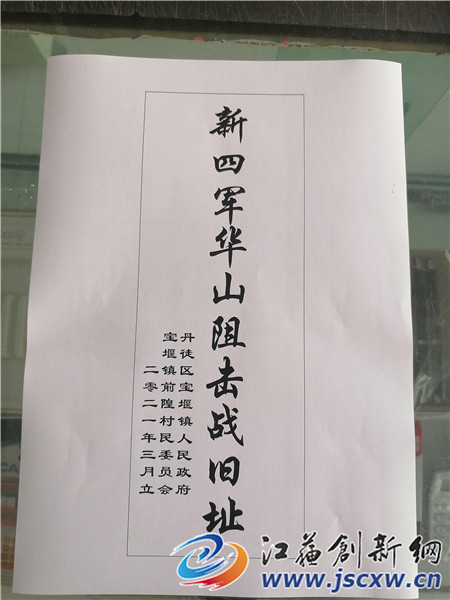 新四军华山阻击战旧址
丹徒区宝堰镇人民政府
宝堰镇前隍村民委员会
二零二一年三月立
江苏创新網
www.jscxw.cn